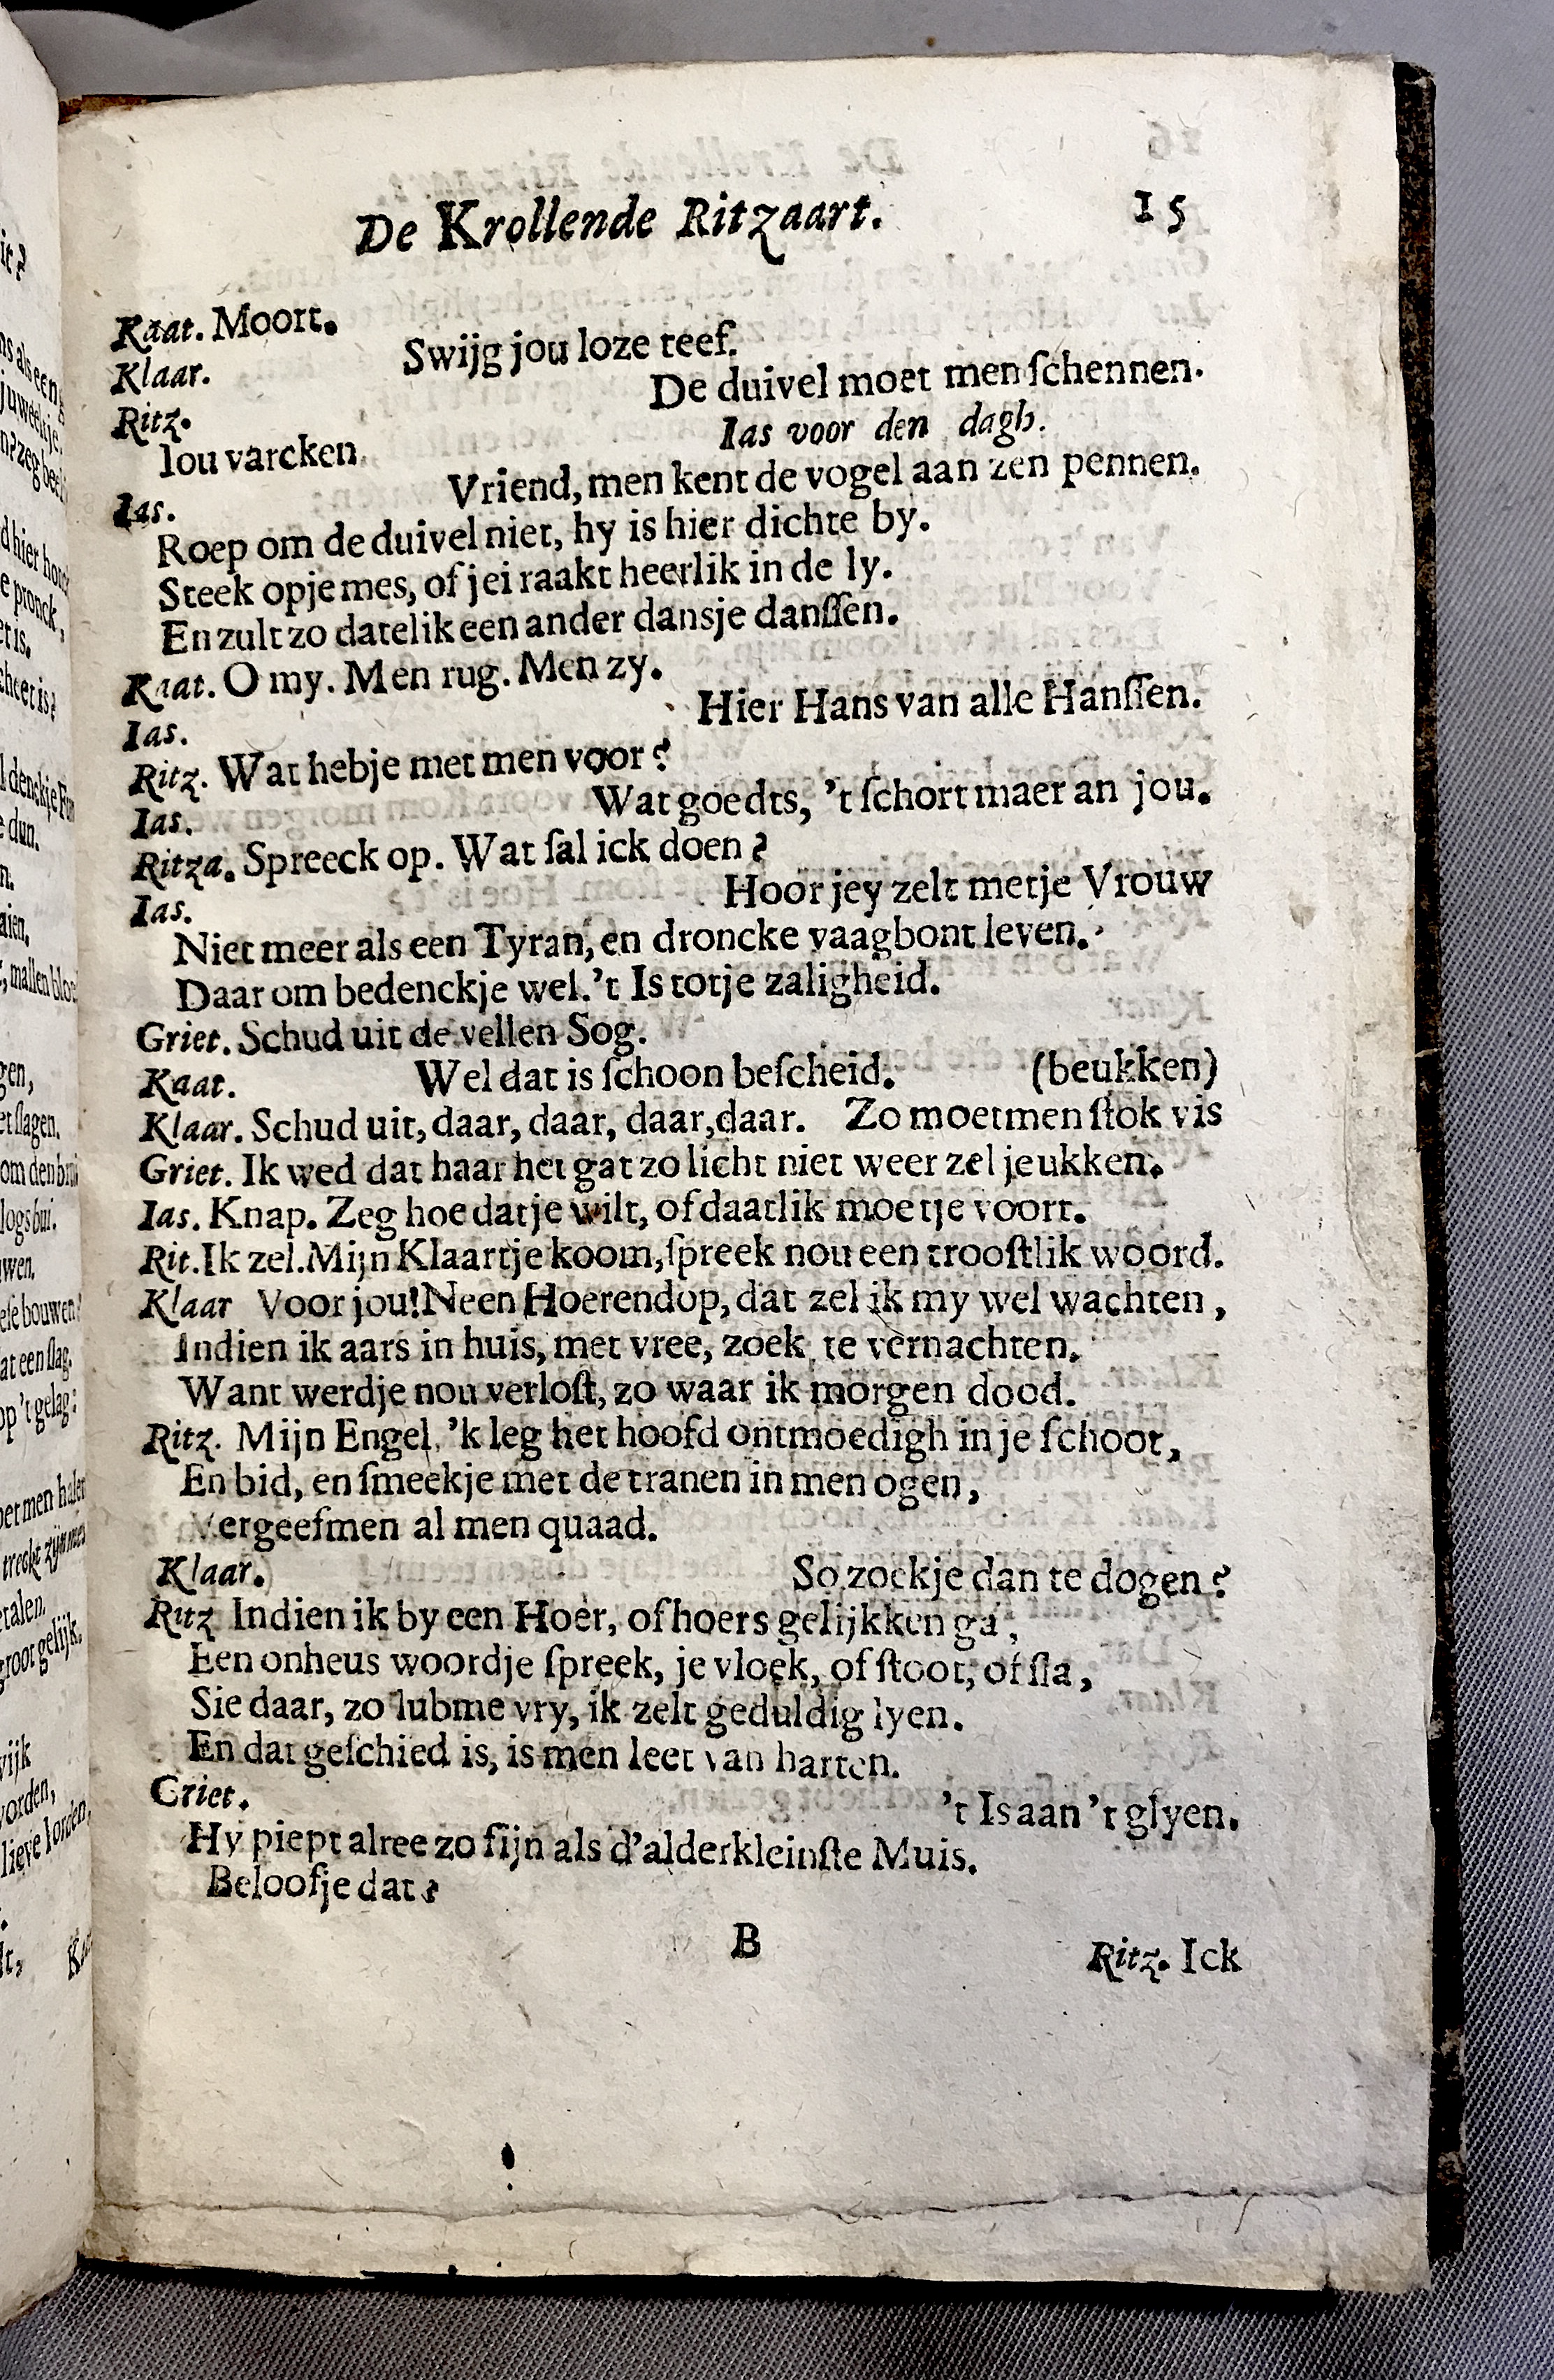 De Krollende Ritzaart. 15
Kaat. Moort.
Klaar. Swijg jou loze teef.
Ritz. De duivel moet men ſchennen.
Ias voor den dagh.
Iou varcken
Ias. Vriend, men kent de vogel aan zen pennen.
Roep om de duivel niet, hy is hier dichte by.
Steek opje mes, of jei raakt heerlik in de ly.
En zult zo datelik een ander dansje danſſen.
Kaat. O my. Men rug. Men zy.
Ias. Hier Hans van alle Hanſſen.
Ritz. Wat hebje met men voor?
Ias. Wat goedts, 't ſchort maer an jou.
Ritza. Spreeck op. Wat ſal ick doen?
Ias. Hoor jey zelt metje Vrouw
Niet meer als een Tyran, en droncke vaagbont leven.
Daar om bedenckje wel. 't Is totje zaligheid.
Griet. Schud uit de vellen Sog.
Kaat. Wel dat is ſchoon beſcheid. (beukken)
Klaar. Schud uit, daar, daar, daar, daar. Zo moetmen ſtok vis
Griet. Ik wed dat haar het gat zo licht niet weer zel jeukken.
Ias. Knap. Zeg hoe datje wilt, of daatlik moetje voort.
Rit. Ik zel. Mijn Klaartje koom, ſpreek nou een trooſtlik woord.
Klaar Voor jou! Neen Hoerendop, dat zel ik my wel wachten,
Indien ik aars in huis, met vree, zoek te vernachten.
Want werdje nou verloſt, zo waar ik morgen dood.
Ritz. Mijn Engel, 'k leg het hoofd ontmoedigh in je ſchoot,
En bid, en ſmeekje met de tranen in men ogen,
Vergeefmen al men quaad.
Klaar. So zoekje dan te dogen?
Ritz Indien ik by een Hoer, of hoers gelijkken ga,
Een onheus woordje ſpreek, je vloek, of ſtoot, of ſla,
Sie daar, zo lubme vry, ik zelt geduldig lyen.
En dat geſchied is, is men leet van harten.
Griet. 't Is aan 't glyen.
Hy piept alree zo fijn als d'alderkleinſte Muis.
Beloofje dat?
B Ritz. Ick